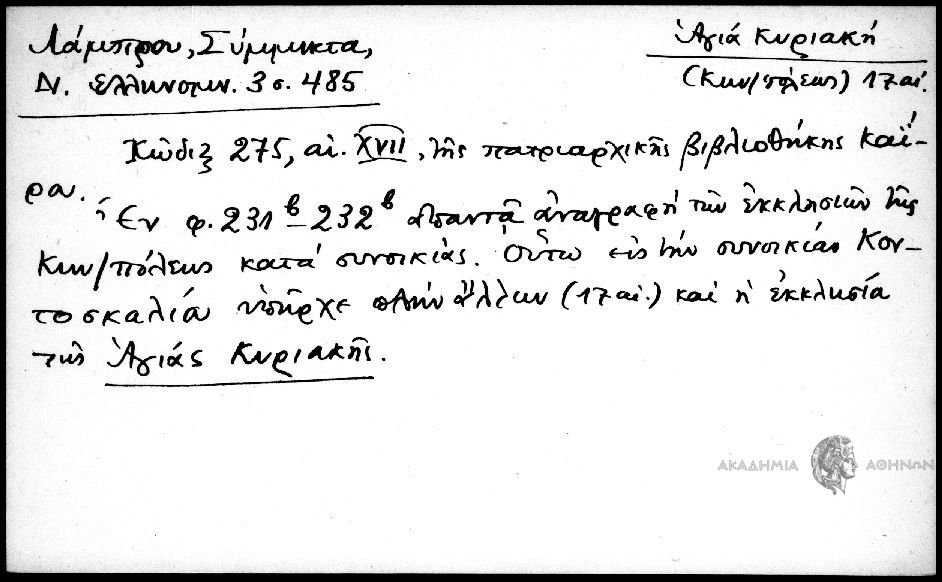 Λάμπρου, Σύμμικτα,
Ν. Ελληνομν. 3 σ. 485
Ἁγιά Κυριακή
(Κων/πόλεως) 17 αἰ.
Κῶδιξ 275, αἰ. XVII, τῆς πατριαρχικῆς βιβλιοθήκης Καΐ-
ρου.
Ἐν φ. 231β-232β ἀπαντᾷ ἀναγραφή τῶν ἐκκλησιῶν τῆς
Κων/πόλεως κατά συνοικίας. Οὕτω εἰς τήν συνοικίαν Κον-
τοσκαλιά ὑπῆρχε πλήν ἄλλων (17 αἰ.) καί ἡ ἐκκλησία
τῆς Ἁγιάς Κυριακῆς.
ΑΚΑΔΗΜΙΑ ΑΘΗΝΩΝ